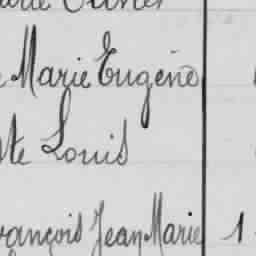 Marie Eugène
te Louis
rançois Jean Marie 1